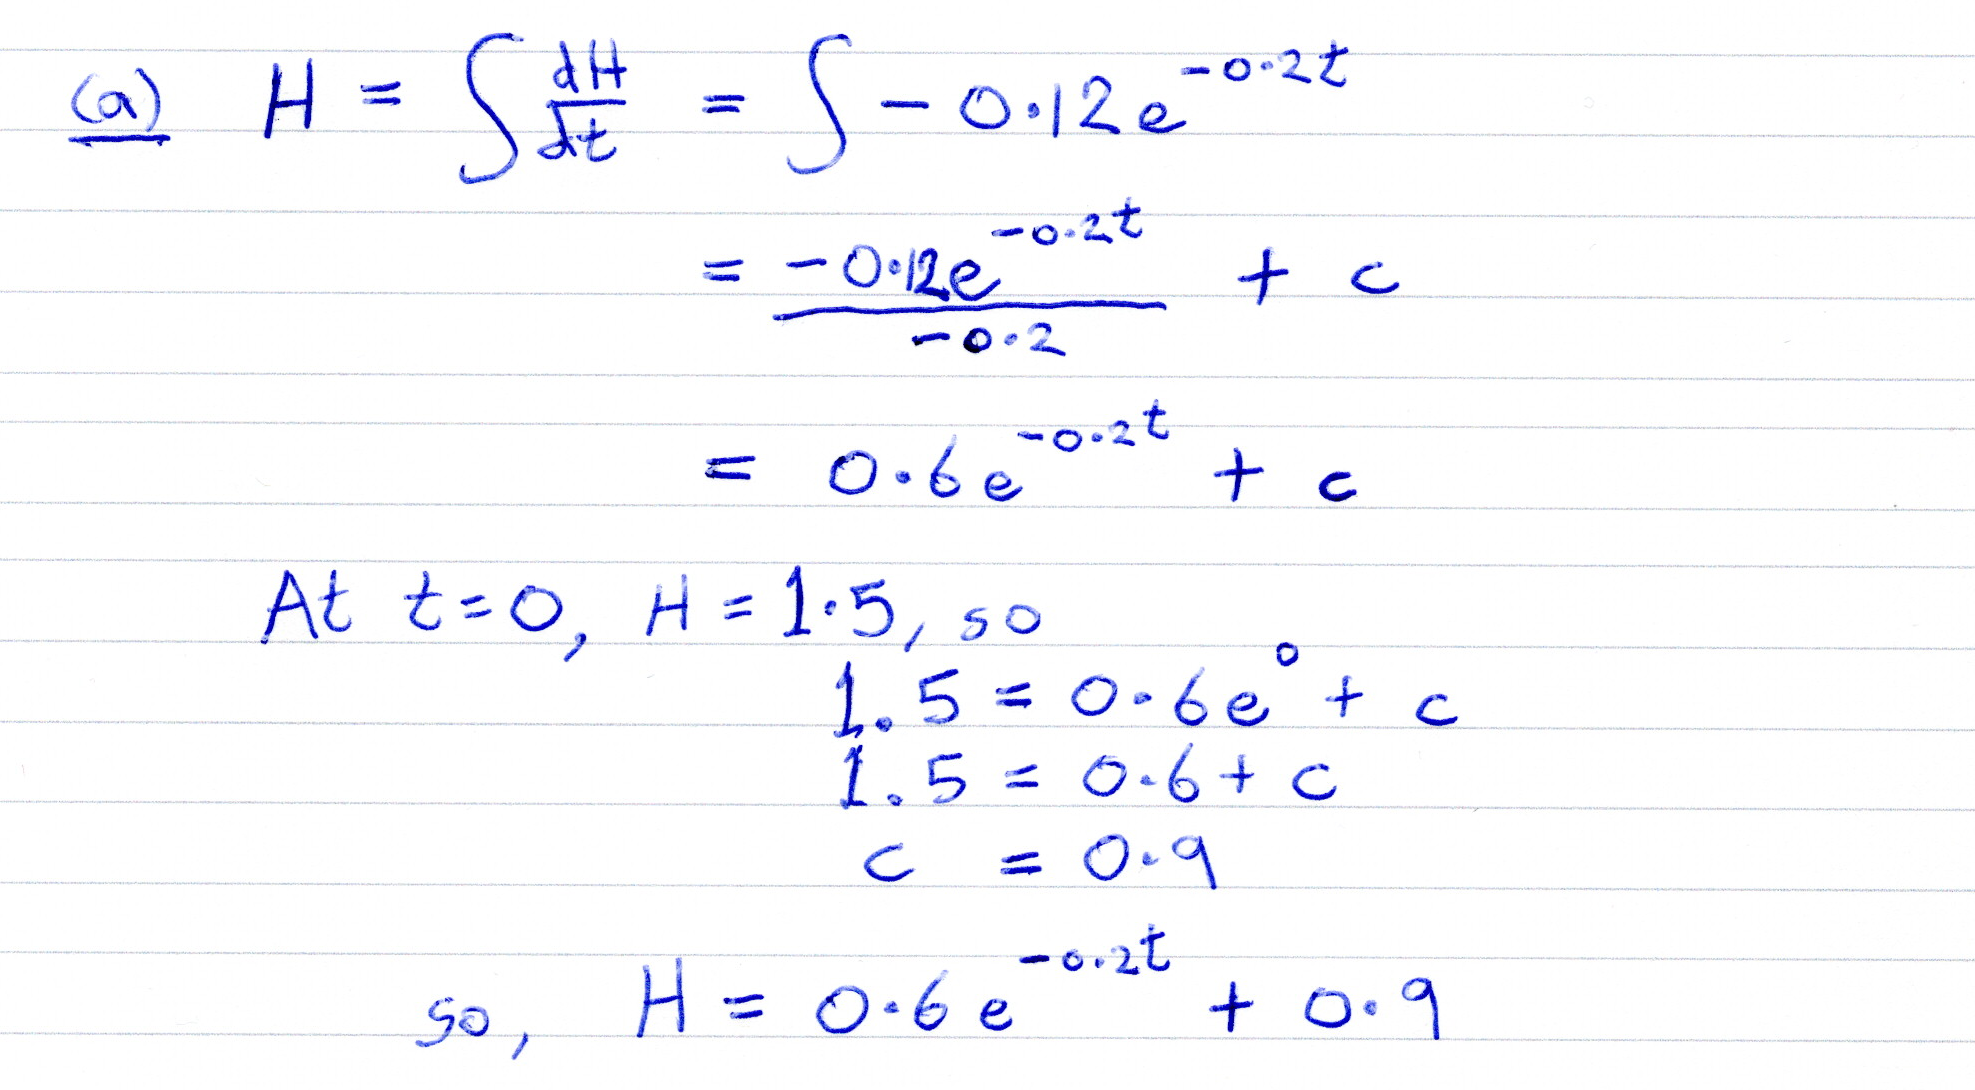 (a) H = ∫ dH/dt = ∫ -0.12e^-0.2t
= -0.12e^-0.2t / -0.2 + c
= 0.6e^-0.2t + c
At t=0, H = 1.5, so
1.5 = 0.6e^0 + c
1.5 = 0.6 + c
c = 0.9
so, H = 0.6e^-0.2t + 0.9